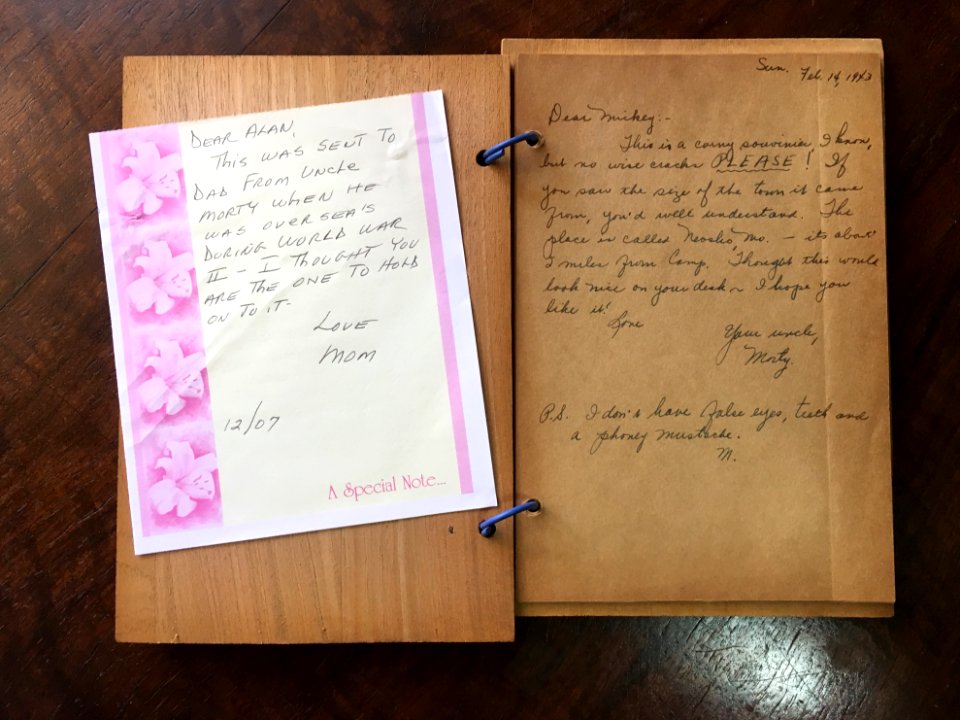 DEAR ALAN,
THIS WAS SENT TO
DAD FROM UNCLE
MORTY WHEN HE
WAS OVERSEA'S
DURING WORLD WAR
II - I THOUGHT YOU
ARE THE ONE TO HOLD
ON TO IT-
LOVE
MOM
12/07
A Special Note...
Sun. Feb. 14, 1943
Dear Mickey:-
This is a corny souvinier, I know,
but no wise cracks PLEASE! If
you saw the size of the town it came
from, you'd well understand. The
place is called Neosho, Mo. - its about
2 miles from Camp. Thought this would
look nice on your desk ~ I hope you
like it!
Love
Your uncle,
Morty.
P.S. I don't have false eyes, teeth and
a phoney mustache.
M.